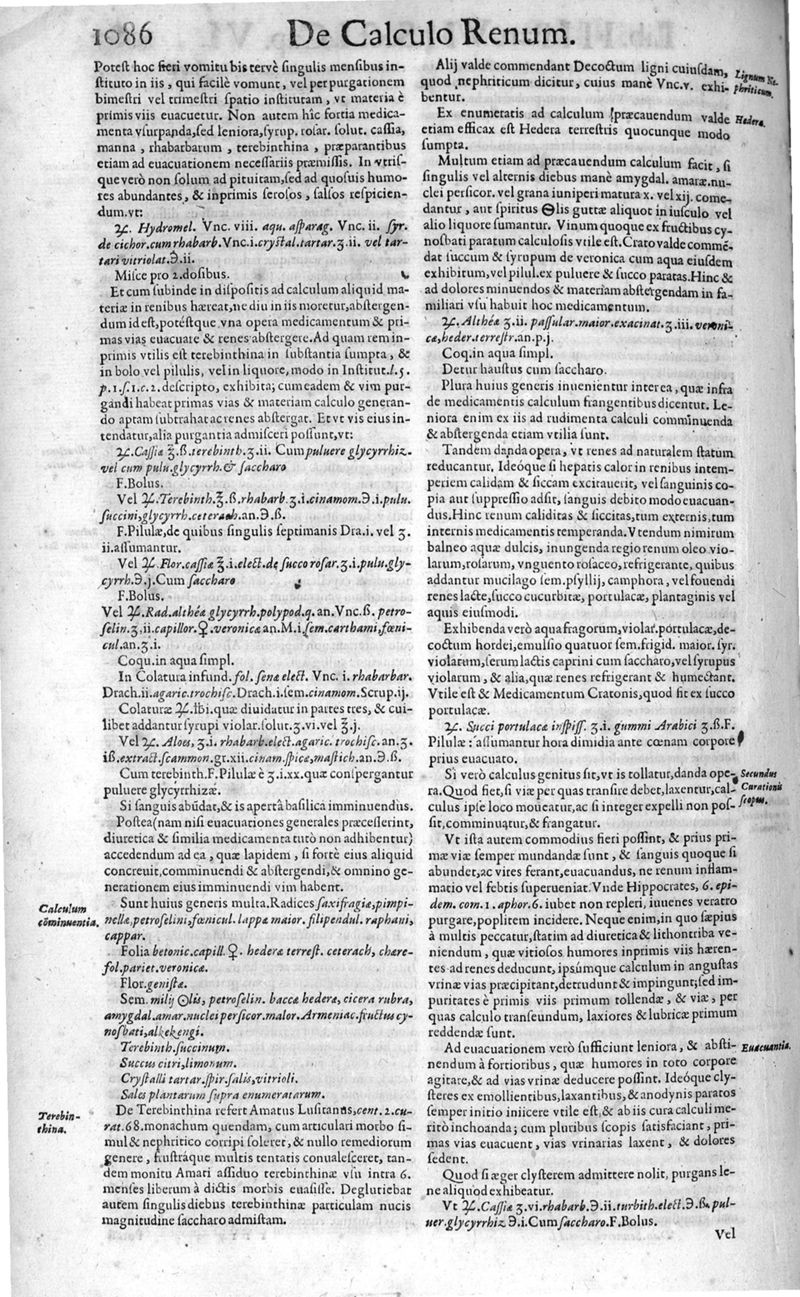 1086 De Calculo Renum.
Potest hoc fieri vomitu bis tervè singulis mensibus in-
stituto in iis, qui facilè vomunt, vel per purgationem
bimestri vel trimestri spatio institutam, vt materia è
primis viis euacuetur. Non autem hîc fortia medica-
menta vsurpanda, sed leniora, syrup. rosar. solut. cassia,
manna, rhabarbarum, terebinthina, præparantibus
etiam ad euacuationem necessariis præmissis. In vtris-
que verò non solum ad pituitam, sed ad quosuis humo-
res abundantes, & inprimis serosos, salsos respicien-
dum. vt:
♃. Hydromel. Vnc. viii. aqu. asparag. Vnc. ii. syr.
de cichor. cum rhabarb. Vnc. i. crystal. tartar. ʒ. ii. vel tar-
tari vitriolat. ℈. ii.
Misce pro 2. dosibus.
Et cum subinde in dispositis ad calculum aliquid ma-
teriæ in renibus hæreat, ne diu in iis moretur, abstergen-
dum id est, potéstque vna opera medicamentum & pri-
mas vias euacuare & renes abstergere. Ad quam rem in-
primis vtilis est terebinthina in substantia sumpta, &
in bolo vel pilulis, vel in liquore, modo in Institut. l. 5.
p. 1. s. 1. c. 2. descripto, exhibita; cum eadem & vim pur-
gandi habeat primas vias & materiam calculo generan-
do aptam subtrahat ac renes abstergat. Et vt vis eius in-
tendatur, alia purgantia admisceri possunt, vt:
♃. Cassiæ ℥. ß. terebinth. ʒ. ii. Cum puluere glycyrrhiz.
vel cum pulu. glycyrrh. & saccharo
F. Bolus.
Vel ♃. Terebinth. ℥. ß. rhabarb. ʒ. i. cinamom. ℈. i. pulu.
succini, glycyrrh. ceterach. an. ℈. ß.
F. Pilulæ, de quibus singulis septimanis Dra. i. vel ʒ.
ii. assumantur.
Vel ♃ Flor. cassiæ ℥. i. elect. de succo rosar. ʒ. i. pulu. gly-
cyrrh. ℈. j. Cum saccharo
F. Bolus.
Vel ♃. Rad. althéæ glycyrrh. polypod. q. an. Vnc. ß. petro-
selin. ʒ. ii. capillor. ♀. veronicæ an. M. i. sem. carthami, fœni-
cul. an. ʒ. i.
Coqu. in aqua simpl.
In Colatura infund. fol. senæ elect. Vnc. i. rhabarbar.
Drach. ii. agaric. trochisc. Drach. i. sem. cinamom. Scrup. ij.
Colaturæ ♃. lbi. quæ diuidatur in partes tres, & cui-
libet addantur syrupi violar. solut. ʒ. vi. vel ℥. j.
Vel ♃. Aloes, ʒ. i. rhabarb. elect. agaric. trochisc. an. ʒ.
iß. extract. scammon. gr. xii. cinam. spicæ, mastich. an. ℈. ß.
Cum terebinth. F. Pilulæ è ʒ. i. xx. quæ conspergantur
puluere glycyrrhizæ.
Si sanguis abũdat, & is aperta basilica imminuendus.
Postea (nam nisi euacuationes generales præcesserint,
diuretica & similia medicamenta tutò non adhibentur)
accedendum ad ea, quæ lapidem, si fortè eius aliquid
concreuit, comminuendi & abstergendi, & omnino ge-
nerationem eius imminuendi vim habent.
Calculum
cõminuentia.
Sunt huius generis multa. Radices saxifragiæ, pimpi-
nellæ, petroselini, fœnicul. lappæ maior. filipendul. raphani,
cappar.
Folia betonic. capill. ♀. hederæ terrest. ceterach, chære-
fol. pariet. veronicæ.
Flor. genistæ.
Sem. milij ⊙lis, petroselin. baccæ hederæ, cicera rubra,
amygdal. amar. nuclei persicor. malor. Armeniac. fructus cy-
nosbati, alkekengi.
Terebinth. succinum.
Succus citri, limonum.
Crystalli tartar. spir. salis, vitrioli.
Sales plantarum supra enumeratarum.
Terebin-
thina.
De Terebinthina refert Amatus Lusitanus, cent. 2. cu-
rat. 68. monachum quendam, cum articulari morbo si-
mul & nephritico corripi soleret, & nullo remediorum
genere, frustráque multis tentatis conualesceret, tan-
dem monitu Amati assiduo terebinthinæ vsu intra 6.
menses liberum à dictis morbis euasisse. Deglutiebat
autem singulis diebus terebinthinæ particulam nucis
magnitudine saccharo admistam.
Alij valde commendant Decoctum ligni cuiusdam,
quod nephriticum dicitur, cuius manè Vnc. v. exhi-
bentur.
Lignum Ne-
phriticum.
Ex enumeratis ad calculum præcauendum valde
etiam efficax est Hedera terrestris quocunque modo
sumpta.
Hedera.
Multum etiam ad præcauendum calculum facit, si
singulis vel alternis diebus manè amygdal. amaræ, nu-
clei persicor. vel grana iuniperi matura x. vel xij. come-
dantur, aut spiritus ⊖lis guttæ aliquot in iusculo vel
alio liquore sumantur. Vinum quoque ex fructibus cy-
nosbati paratum calculosis vtile est. Crato valde commẽ-
dat succum & syrupum de veronica cum aqua eiusdem
exhibitum, vel pilul. ex puluere & succo paratas. Hinc &
ad dolores minuendos & materiam abstergendam in fa-
miliari vsu habuit hoc medicamentum.
♃. Althéæ ʒ. ii. passular. maior. exacinat. ʒ. iii. veroni-
cæ, heder. terrestr. an. p. j.
Coq. in aqua simpl.
Detur haustus cum saccharo.
Plura huius generis inuenientur inter ea, quæ infra
de medicamentis calculum frangentibus dicentur. Le-
niora enim ex iis ad rudimenta calculi comminuenda
& abstergenda etiam vtilia sunt.
Tandem danda opera, vt renes ad naturalem statum
reducantur. Ideóque si hepatis calor in renibus intem-
periem calidam & siccam excitauerit, vel sanguinis co-
pia aut suppressio adsit, sanguis debito modo euacuan-
dus. Hinc renum caliditas & siccitas, tum externis, tum
internis medicamentis temperanda. Vtendum nimirum
balneo aquæ dulcis, inungenda regio renum oleo vio-
larum, rosarum, vnguento rosaceo, refrigerante, quibus
addantur mucilago sem. psyllij, camphora, vel fouendi
renes lacte, succo cucurbitæ, portulacæ, plantaginis vel
aquis eiusmodi.
Exhibenda verò aqua fragorum, violar. portulacæ, de-
coctum hordei, emulsio quatuor sem. frigid. maior. syr.
violarum, serum lactis caprini cum saccharo, vel syrupus
violarum, & alia, quæ renes refrigerant & humectant.
Vtile est & Medicamentum Cratonis, quod fit ex succo
portulacæ.
♃. Succi portulacæ inspiss. ʒ. i. gummi Arabici ʒ. ß. F.
Pilulæ: assumantur hora dimidia ante cœnam corpore
prius euacuato.
Si verò calculus genitus sit, vt is tollatur, danda ope-
ra. Quod fiet, si viæ per quas transire debet, laxentur, cal-
culus ipse loco moueatur, ac si integer expelli non pos-
sit, comminuatur, & frangatur.
Secundus
Curationis
scopus.
Vt ista autem commodius fieri possint, & prius pri-
mæ viæ semper mundandæ sunt, & sanguis quoque si
abundet, ac vires ferant, euacuandus, ne renum inflam-
matio vel febris superueniat. Vnde Hippocrates, 6. epi-
dem. com. 1. aphor. 6. iubet non repleri, iuuenes veratro
purgare, poplitem incidere. Neque enim, in quo sæpius
à multis peccatur, statim ad diuretica & lithontriba ve-
niendum, quæ vitiosos humores inprimis viis hæren-
tes ad renes deducunt, ipsúmque calculum in angustas
vrinæ vias præcipitant, detrudunt & impingunt; sed im-
puritates è primis viis primum tollendæ, & viæ, per
quas calculo transeundum, laxiores & lubricæ primum
reddendæ sunt.
Ad euacuationem verò sufficiunt leniora, & absti-
nendum à fortioribus, quæ humores in toto corpore
agitare, & ad vias vrinæ deducere possint. Ideóque cly-
steres ex emollientibus, laxantibus, & anodynis paratos
semper initio iniicere vtile est, & ab iis cura calculi me-
ritò inchoanda; cum pluribus scopis satisfaciant, pri-
mas vias euacuent, vias vrinarias laxent, & dolores
sedent.
Euacuantia.
Quod si æger clysterem admittere nolit, purgans le-
ne aliquod exhibeatur.
Vt ♃. Cassiæ ʒ. vi. rhabarb. ℈. ii. turbith. elect. ℈. ß. pul-
uer. glycyrrhiz. ℈. i. Cum saccharo. F. Bolus.
Vel